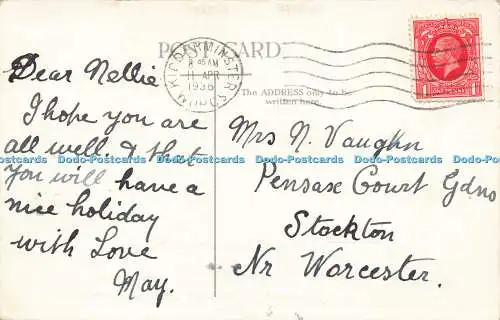 POST CARD
KIDDERMINSTER
8 45 AM
11 APR
1936
The ADDRESS only to be
written here.
ONE PENNY
Dear Nellie
I hope you are
all well, & that
You will have a
nice holiday
with Love
May.
Mrs N. Vaughn
Dodo-Postcards Dodo-Postcards Dodo-Postcards Dodo-Postcards Dodo-Postcards Dodo-Postcards
Pensax Court Gdns
Stockton
Nr Worcester.